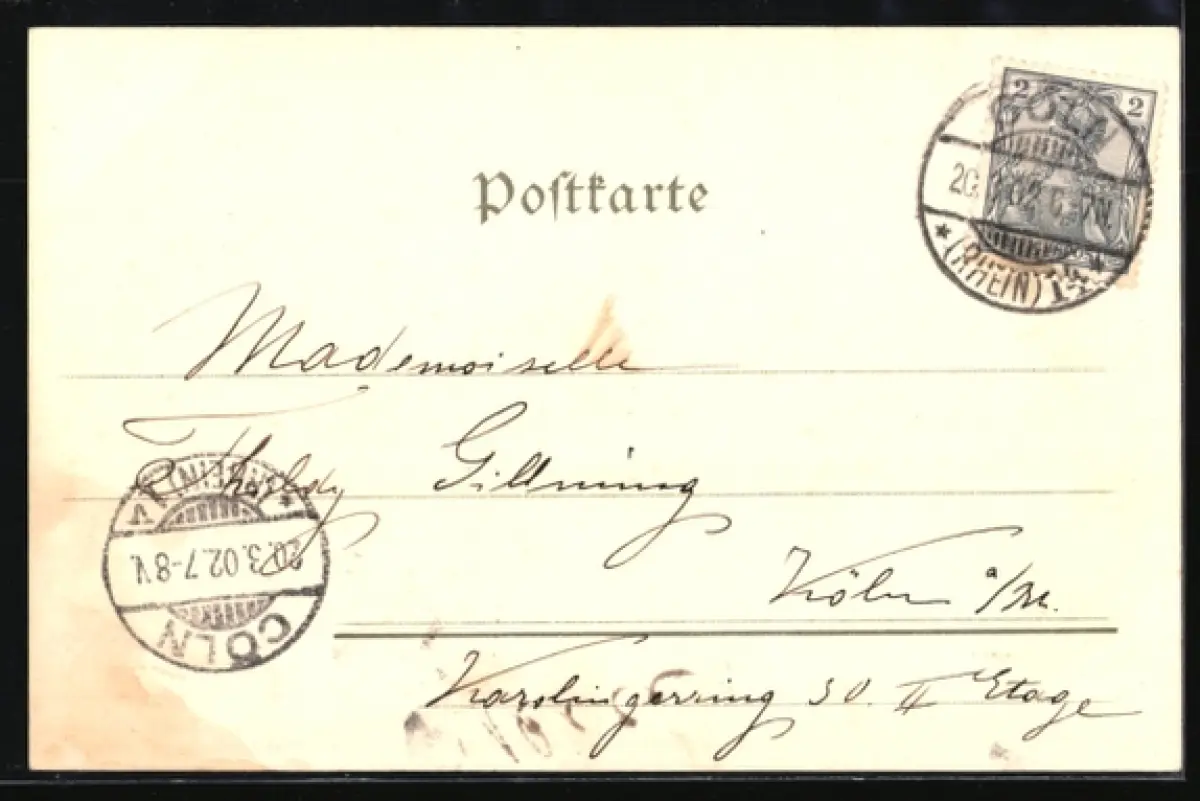 Postkarte
2 2
CÖLN
20.3.02 6-7V.
* (RHEIN) 1 *
Mademoiselle
Gillning
(RHEIN) *
20.3.02.7-8V.
CÖLN
Köln a/Rh.
Karolingerring 30. II Etage